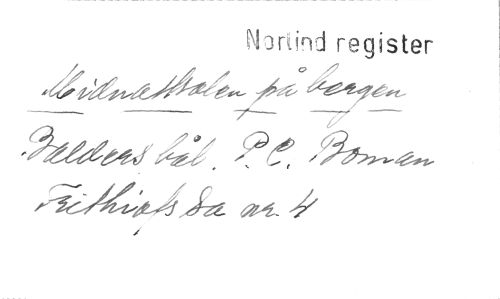 Norlind register
Midnattsolen på bergen
Balders bål. P.C. Boman
Frithiofs Sa nr. 4